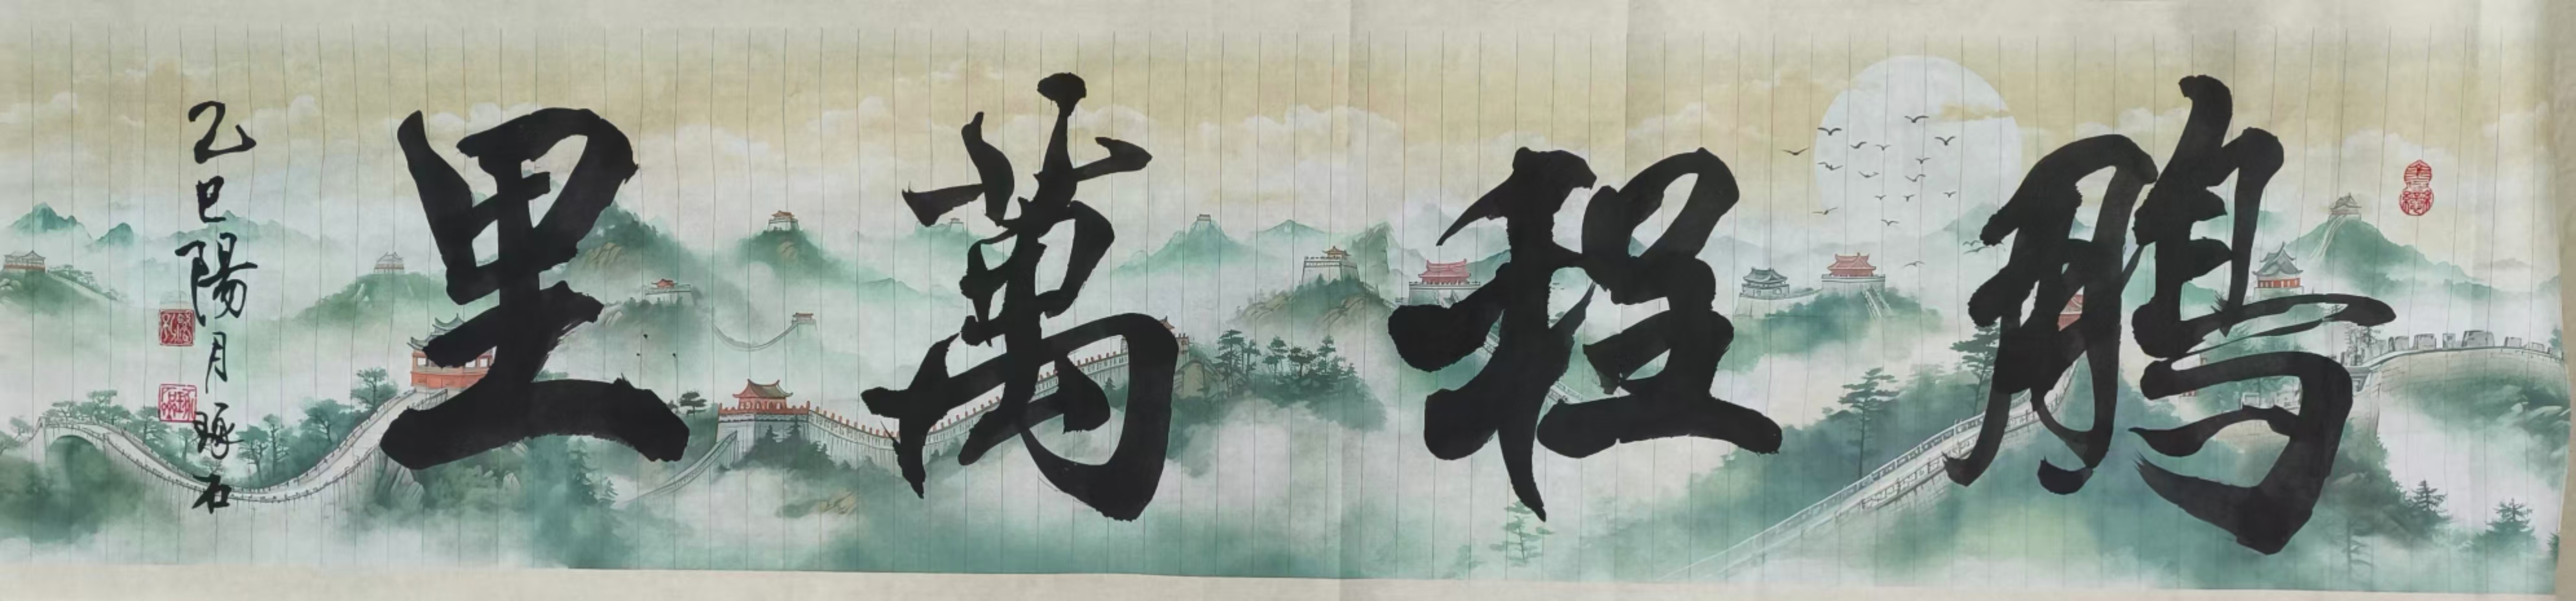 鵬程萬里
乙巳陽月琢石